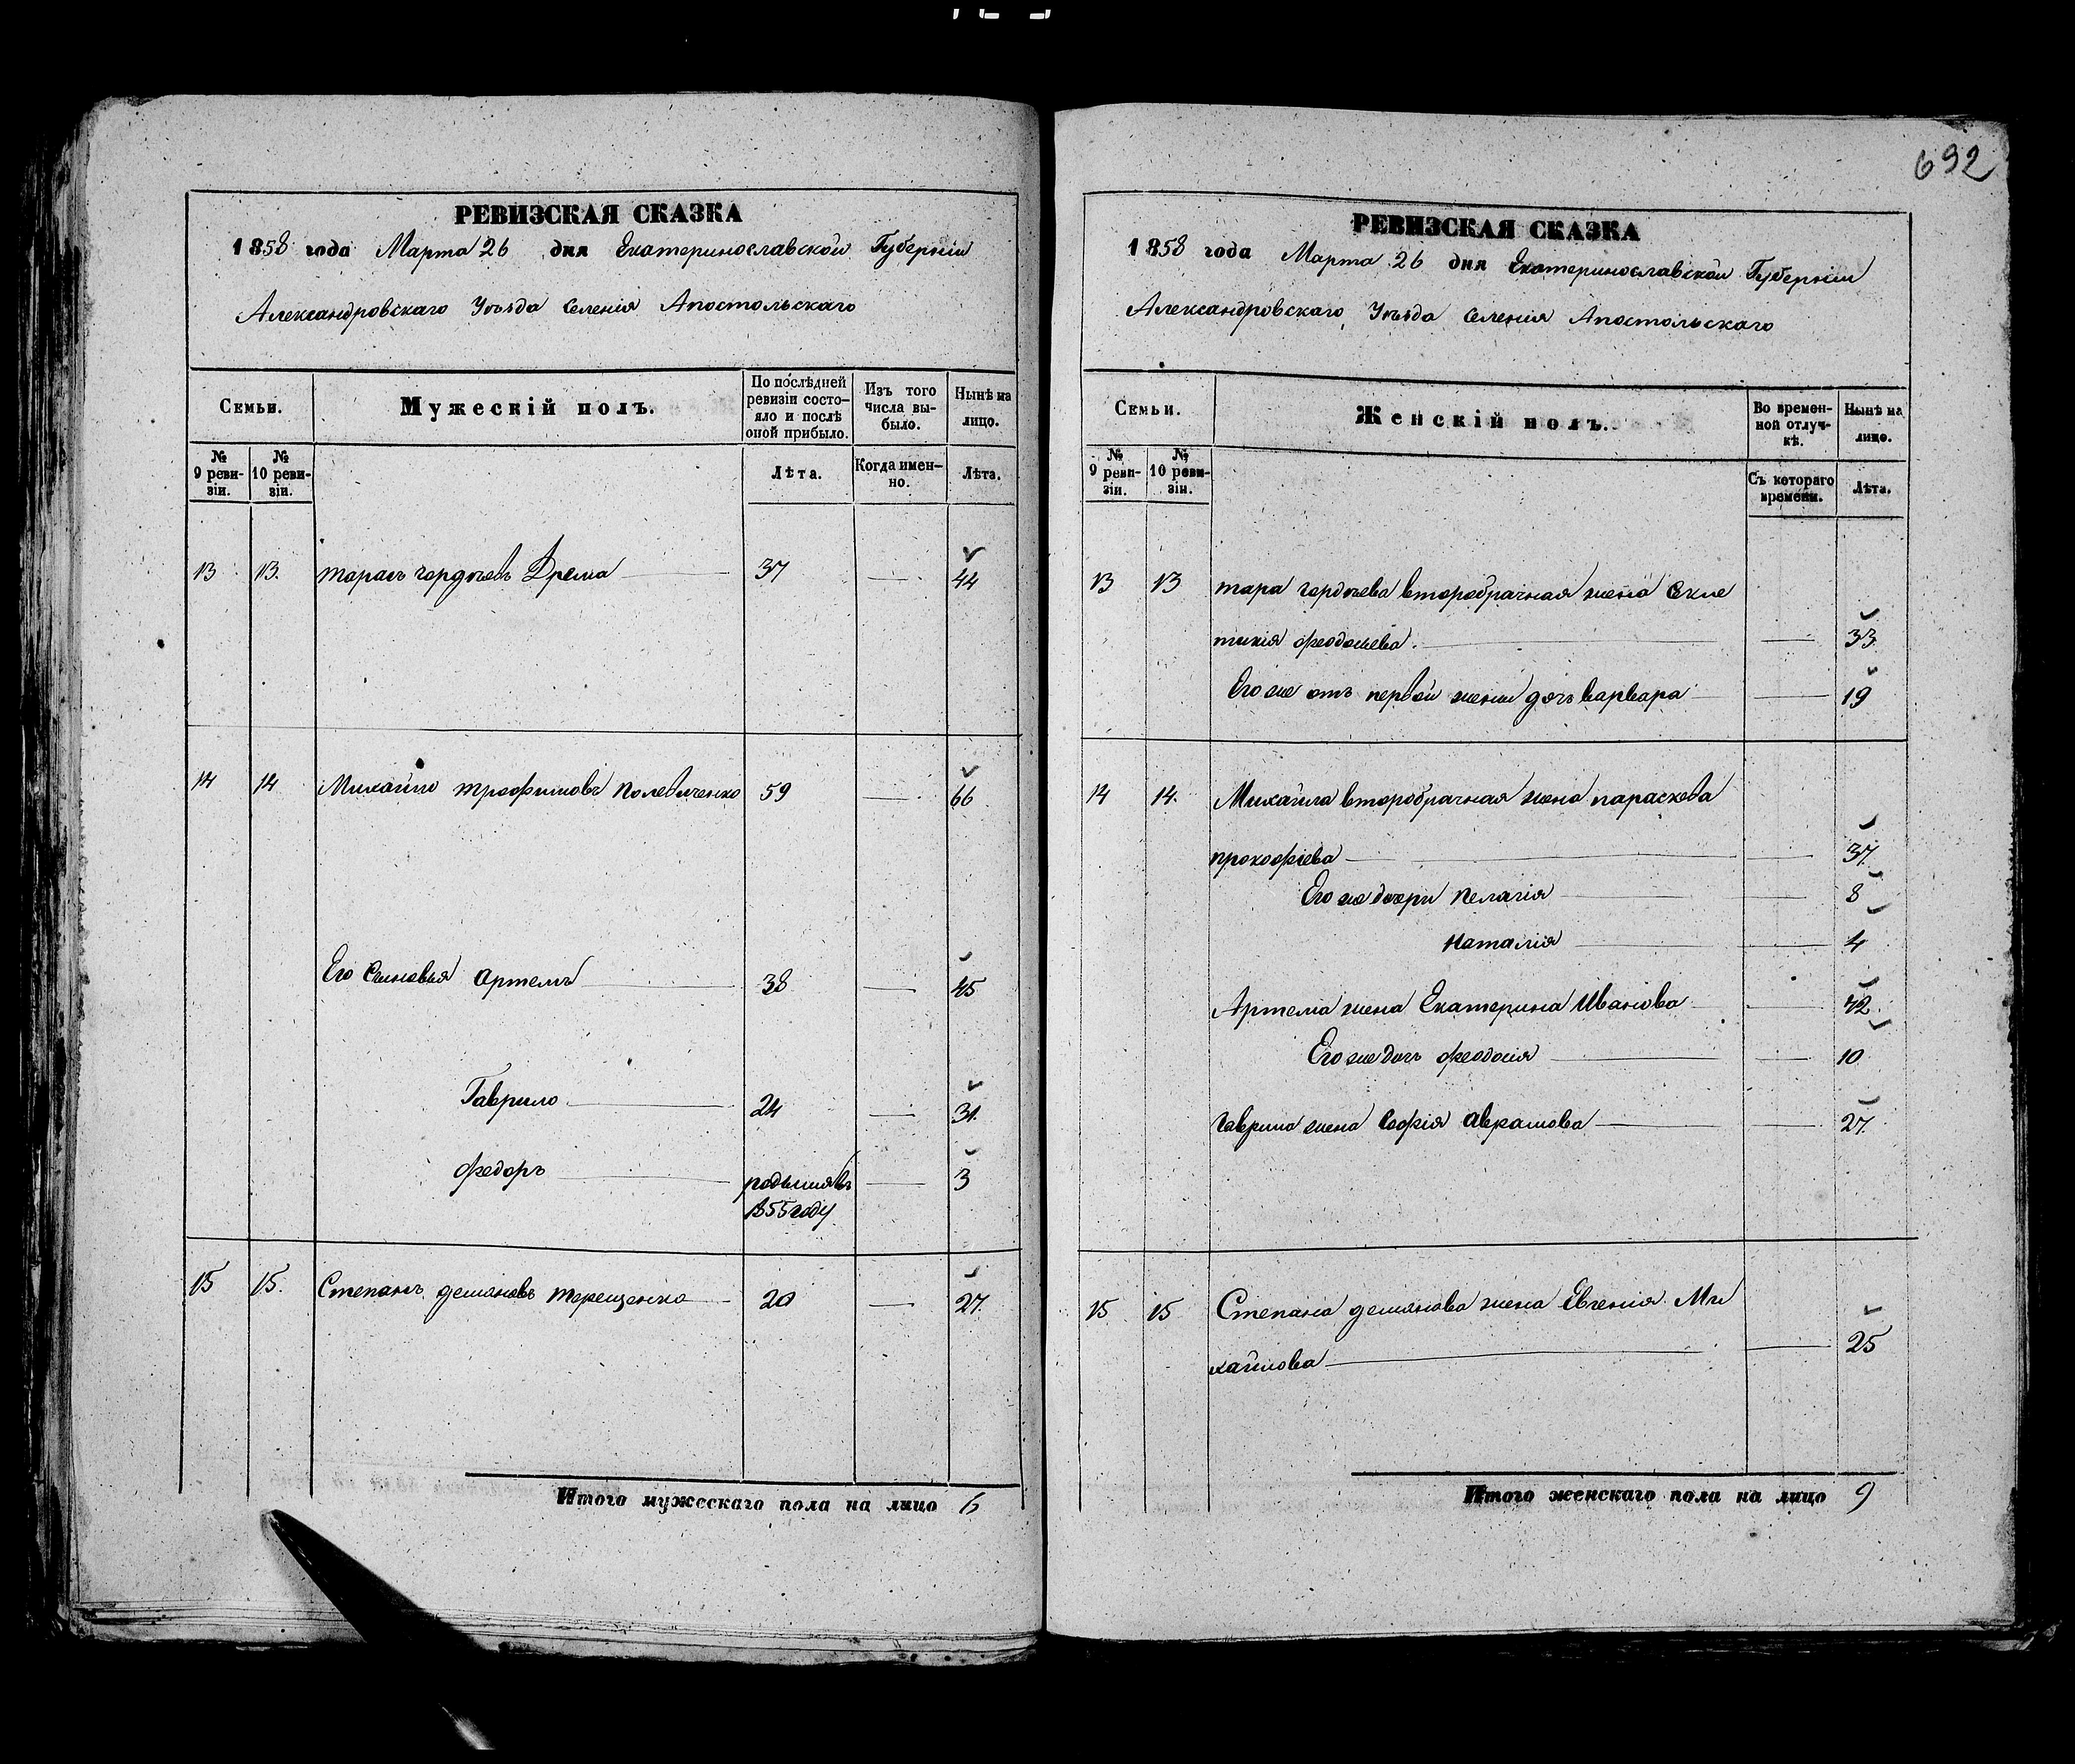 РЕВИЗСКАЯ СКАЗКА
1858 года Марта 26 дня Екатеринославской Губерніи
Александровскаго Уѣзда Селенія Апостольскаго
Семьи.
Мужескій полъ.
По послѣдней ревизіи состо-яло и послѣ оной прибыло.
Изъ того числа вы-было.
Нынѣ на лицо.
№ 9 реви-зіи.
№ 10 реви-зіи.
Лѣта.
Когда имен-но.
Лѣта.
13 13. тарасъ гордѣевъ Дрема 37 — 44
14 14 Михайло трофимовъ 59 — 66
Его Сыновья Артемъ 38 — 45
Гаврило 24 — 31.
федоръ родился въ — 3
1855 году
15 15. Степанъ демяновъ терещенко 20 — 27.
Итого мужескаго пола на лицо 6
692
РЕВИЗСКАЯ СКАЗКА
1858 года Марта 26 дня Екатеринославской Губерніи
Александровскаго Уѣзда Селенія Апостольскаго
Семьи.
Женскій полъ.
Во времен-ной отлуч-кѣ.
Нынѣ на лицо.
№ 9 реви-зіи.
№ 10 реви-зіи.
Съ котораго времени.
Лѣта.
13 13 тара гордѣева второбрачная жена
феодосьева. — 33
Его же отъ первой жены дочь варвара — 19
14 14. Михайла второбрачная жена параскева
прокофіева — 37.
Его же дочери пелагія — 8
Наталія — 4
Артема жена Екатерина Иванова — 42.
Его же дочь феодосія — 10
гаврила жена Софія Аврамова — 27.
15 15 Степана демянова жена Евгенія Ми
хайлова — 25
Итого женскаго пола на лицо 9